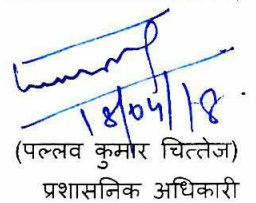 18/04/18.
(पल्लव कुमार चित्तेज)
प्रशासनिक अधिकारी